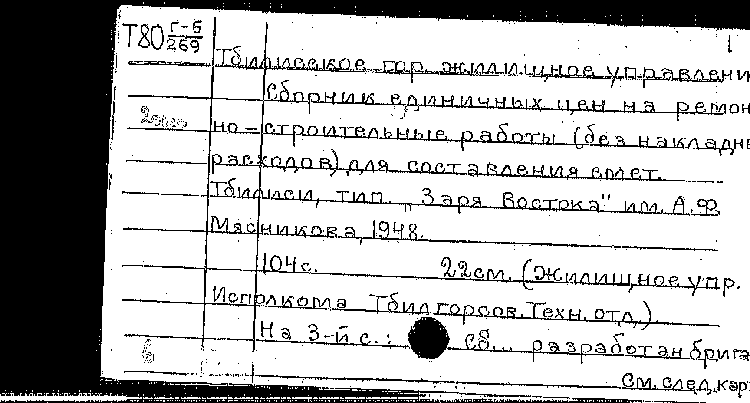 Т80 Г-5/269
Тбилисское гор. жилищное управлени
Сборник единичных цен на ремон
но-строительные работы (без накладны
расходов) для составления смет.
Тбилиси, тип. „Заря Востока" им. А.Ф.
Мясникова, 1948.
104с. 22см. (Жилищное упр.
Исполкома Тбилгорсов. Техн. отд.)
На 3-й с.: Сб... разработан брига
См. след. кар